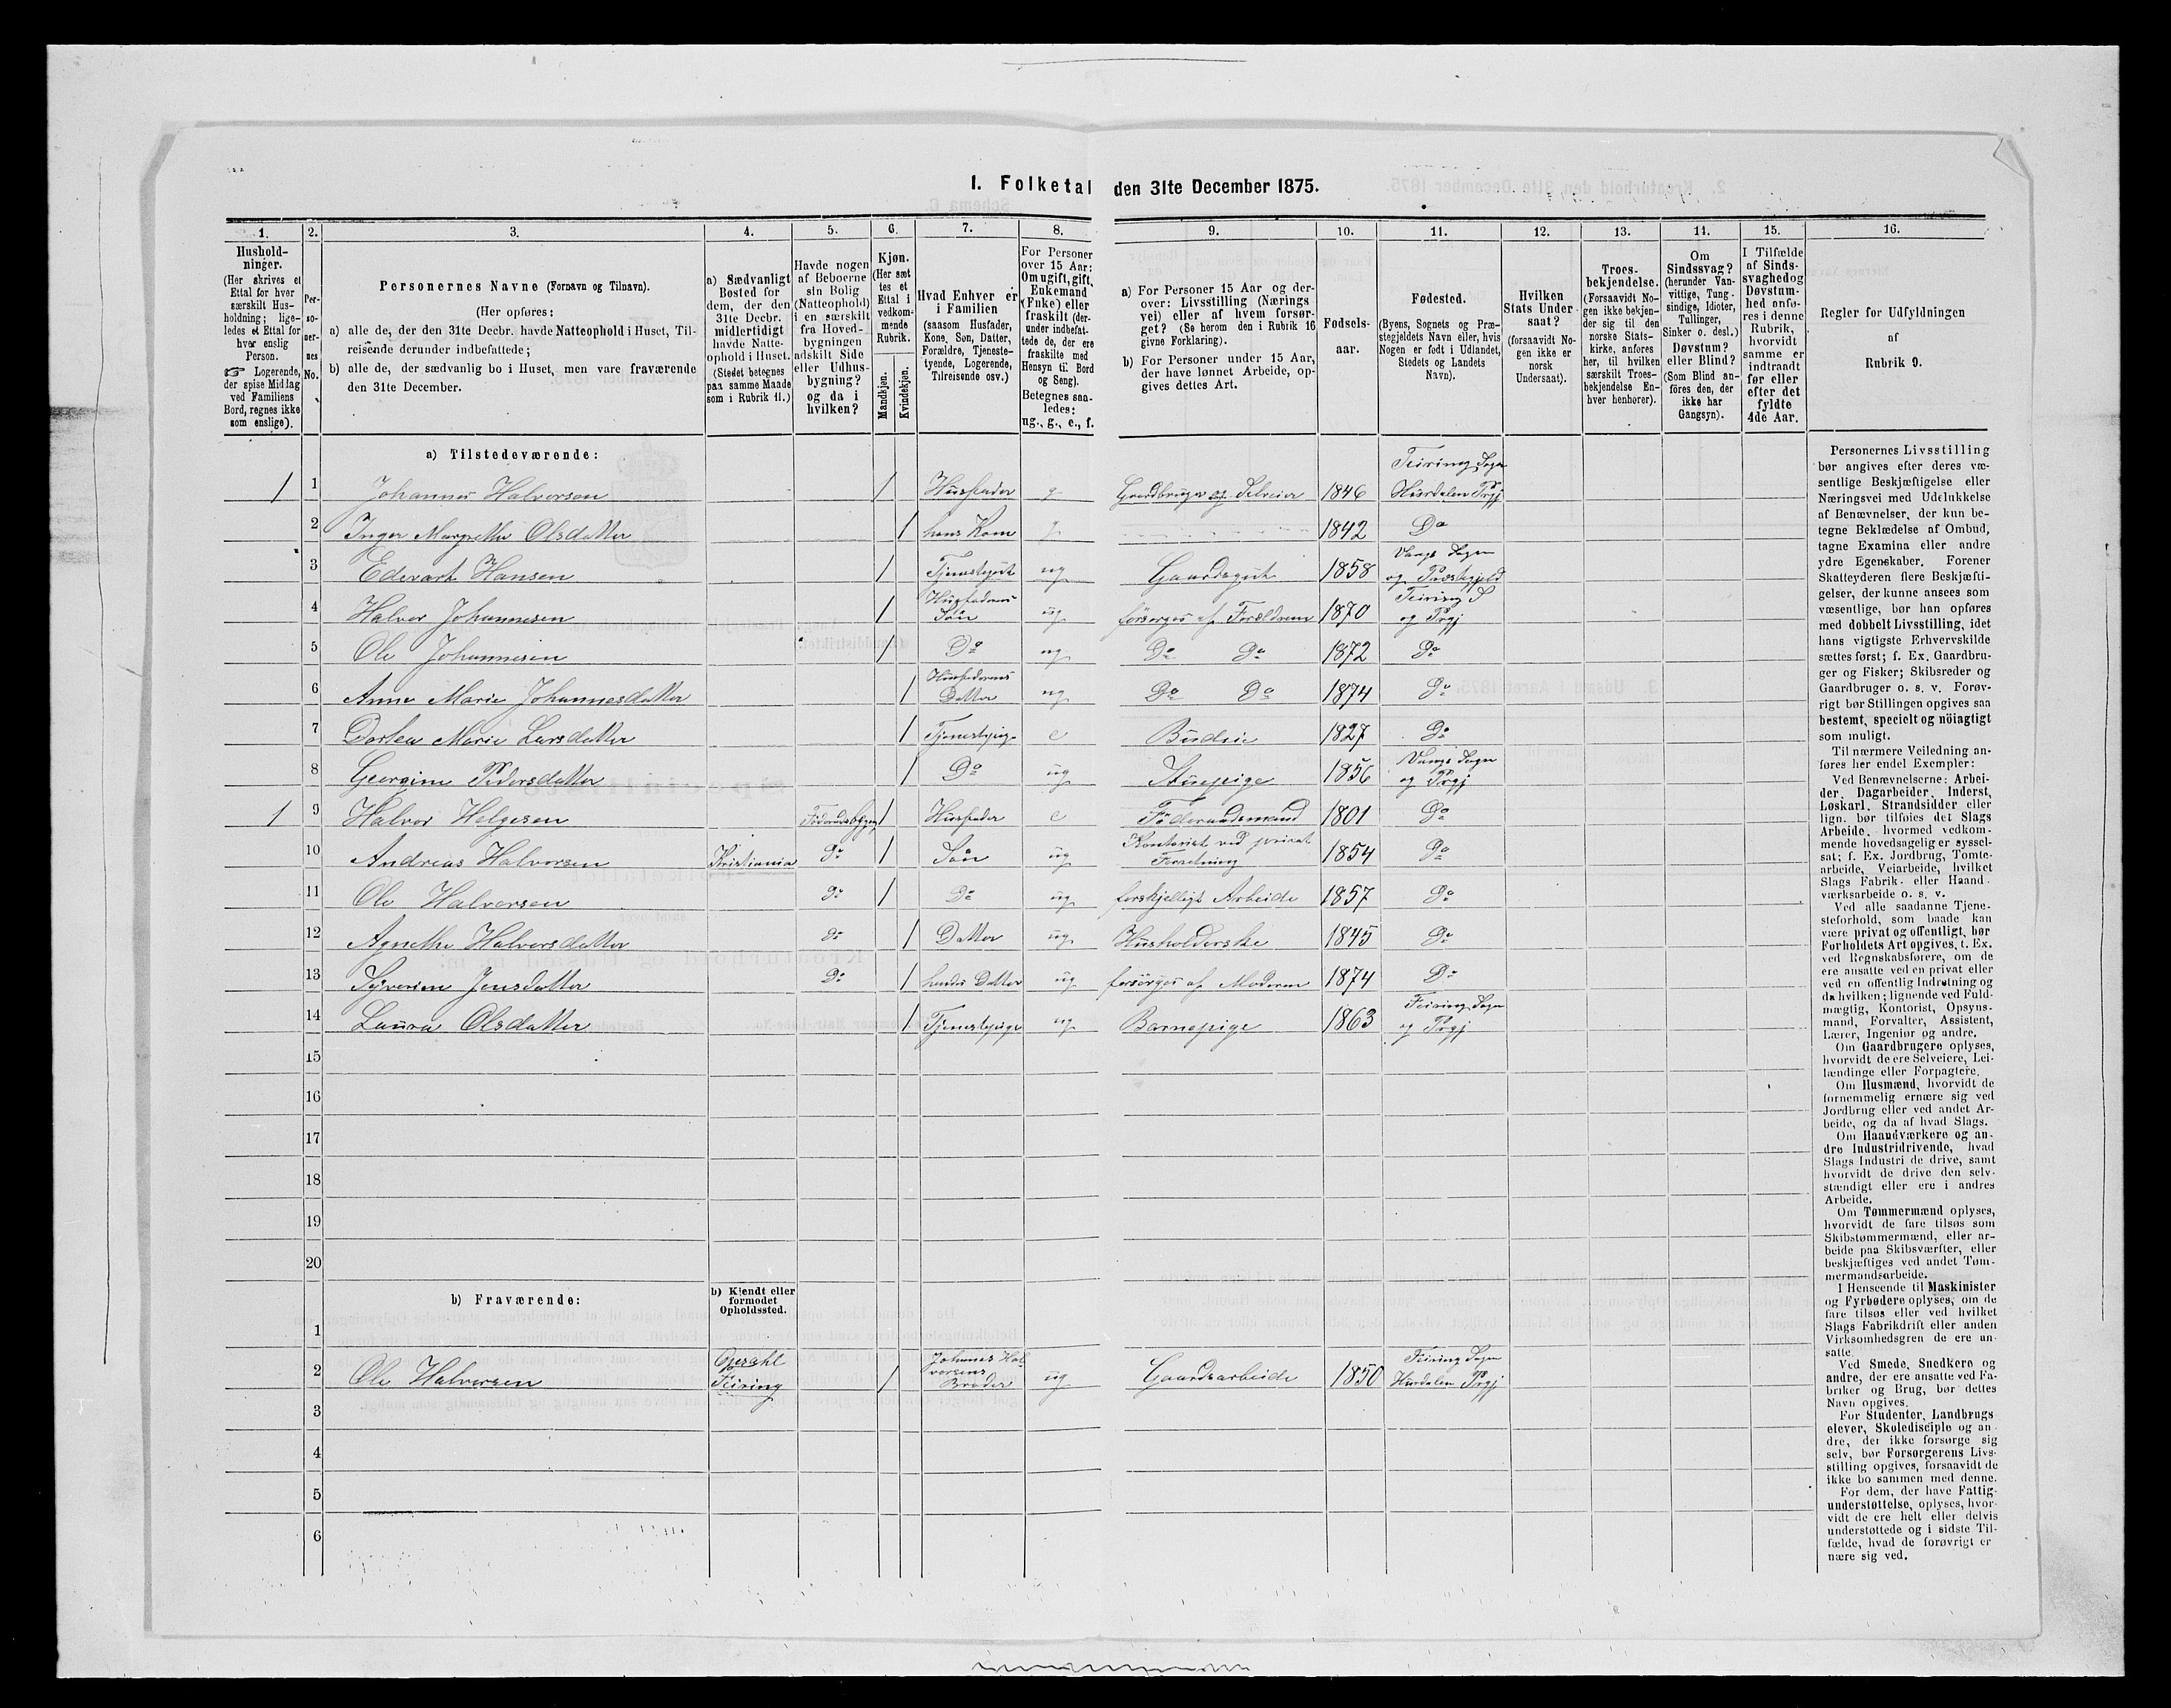 1. Folketal den 31te December 1875.
1.
Hushold-
ninger.
(Her skrives et
Ettal for hver
særskilt Hus-
holdning; lige-
ledes et Ettal for
hver enslig
Person.
☞ Logerende,
der spise Middag
ved Familiens
Bord, regnes ikke
som enslige).
2.
Per-
so-
ner-
nes
No.
3.
Personernes Navne (Fornavn og Tilnavn).
(Her opføres:
a) alle de, der den 31te Decbr. havde Natteophold i Huset, Til-
reisende derunder indbefattede;
b) alle de, der sædvanlig bo i Huset, men vare fraværende
den 31te December.
4.
a) Sædvanligt
Bosted for
dem, der den
31te Decbr.
midlertidigt
havde Natte-
ophold i Huset.
(Stedet betegnes
paa samme Maade
som i Rubrik 11.)
5.
Havde nogen
af Beboerne
sin Bolig
(Natteophold)
i en særskilt
fra Hoved-
bygningen
adskilt Side
eller Udhus-
bygning?
og da i
hvilken?
6.
Kjøn.
(Her sæt
tes et
Ettal i
vedkom-
mende
Rubrik.
Mandkjøn.
Kvindekjøn.
7.
Hvad Enhver er
i Familien
(saasom Husfader,
Kone, Søn, Datter,
Forældre, Tjeneste-
tyende, Logerende,
Tilreisende osv.)
8.
For Personer
over 15 Aar:
Om ugift, gift,
Enkemand
(Enke) eller
fraskilt (der-
under indbefat-
tede de, der ere
fraskilte med
Hensyn til Bord
og Seng).
Betegnes saa-
ledes:
ug., g., e., f.
9.
a) For Personer 15 Aar og der-
over: Livsstilling (Nærings
vei) eller af hvem forsør-
get? (Se herom den i Rubrik 16
givne Forklaring).
b) For Personer under 15 Aar,
der have lønnet Arbeide, op-
gives dettes Art.
10.
Fødsels-
aar.
11.
Fødested.
(Byens, Sognets og Præ-
stegjeldets Navn eller, hvis
Nogen er født i Udlandet,
Stedets og Landets
Navn).
12.
Hvilken
Stats Under
saat?
(forsaavidt No-
gen ikke er
norsk
Undersaat).
13.
Troes-
bekjendelse.
(Forsaavidt No-
gen ikke bekjen-
der sig til den
norske Stats-
kirke, anføres
her, til hvilken
særskilt Troes-
bekjendelse En-
hver henhører).
14.
Om
Sindssvag?
(herunder Van-
vittige, Tung-
sindige, Idioter,
Tullinger,
Sinker o. desl.)
Døvstum?
eller Blind?
(Som Blind an-
føres den, der
ikke har
Gangsyn).
15.
I Tilfælde
af Sinds-
svaghed og
Døvstum-
hed anfø-
res i denne
Rubrik,
hvorvidt
samme er
indtraadt
før eller
efter det
fyldte
4de Aar.
16.
Regler for Udfyldningen
af
Rubrik 9.
a) Tilstedeværende:
1 1 Johannes Halvorsen 1 Husfader g Gaardbruger og Selveier 1846 Feiring Sogn Hurdalen Prgj
2 Inger Margrethe Olsdatter 1 hans Kone g 1842 Do
3 Edevart Hansen 1 Tjenestegut ug Gaardsgut 1858 Vangs Sogn og Præstegjeld
4 Halvor Johannesen 1 Husfaderens Søn ug forsørges af Forældrene 1870 Feiring S og Prgj
5 Ole Johannesen 1 Do ug Do Do 1872 Do
6 Anne Marie Johannesdatter 1 Husfaderens Datter ug Do Do 1874 Do
7 Dorthea Marie Larsdatter 1 Tjenestepige e Budeie 1827 Do
8 Georgine Pedersdatter 1 Do ug Stuepige 1856 Vangs Sogn og Prgj
1 9 Halvor Helgesen Føderaadsbygning 1 Husfader e Föderaadsmand 1801 Do
10 Andreas Halvorsen Kristiania Do 1 Søn ug Kontorist ved privat Forretning 1854 Do
11 Ole Halvorsen Do 1 Do ug forskjelligt Arbeide 1857 Do
12 Agnethe Halvorsdatter Do 1 Datter ug Husholderske 1845 Do
13 Syverine Jensdatter Do 1 hendes Datter ug forsörges af Moderen 1874 Do
14 Laura Olsdatter 1 Tjenestepige ug Barnepige 1863 Feiring Sogn og Prgj
15
16
17
18
19
20
b) Fraværende:
b) Kjendt eller
formodet
Opholdssted.
1
2 Ole Halvorsen Opsahl Feiring 1 Johannes Halvorsens Broder ug Gaardsarbeide 1850 Feiring Sogn Hurdalen Prgj
3
4
5
6
Personernes Livsstilling
bør angives efter deres væ-
sentlige Beskjæftigelse eller
Næringsvei med Udelukkelse
af Benævnelser, der kun be-
tegne Beklædelse af Ombud,
tagne Examina eller andre
ydre Egenskaber. Forener
Skatteyderen flere Beskjæfti-
gelser, der kunne ansees som
væsentlige, bør han opføres
med dobbelt Livsstilling, idet
hans vigtigste Erhvervskilde
sættes først; f. Ex. Gaardbru-
ger og Fisker; Skibsreder og
Gaardbruger o. s. v. Forøv-
rigt bør Stillingen opgives saa
bestemt, specielt og nöiagtigt
som muligt.
Til nærmere Veiledning an-
føres her endel Exempler:
Ved Benævnelserne: Arbei-
der, Dagarbeider, Inderst,
Løskarl, Strandsidder eller
lign. bør tilføies det Slags
Arbeide, hvormed vedkom-
mende hovedsagelig er syssel-
sat; f. Ex. Jordbrug, Tomte-
arbeide, Veiarbeide, hvilket
Slags Fabrik- eller Haand-
værksarbeide o. s. v.
Ved alle saadanne Tjene-
steforhold, som baade kan
være privat og offentligt, bør
Forholdets Art opgives, t. Ex.
ved Regnskabsførere, om de
ere ansatte ved en privat eller
ved en offentlig Indretning og
da hvilken; lignende ved Fuld-
mægtig, Kontorist, Opsyns-
mand, Forvalter, Assistent,
Lærer, Ingeniør og andre.
Om Gaardbrugere oplyses,
hvorvidt de ere Selveiere, Lei-
lændinge eller Forpagtere.
Om Husmænd, hvorvidt de
fornemmelig ernære sig ved
Jordbrug eller ved andet Ar-
beide, og da af hvad Slags.
Om Haandværkere og an-
dre Industridrivende, hvad
Slags Industri de drive, samt
hvorvidt de drive den selv-
stændigt eller ere i andres
Arbeide.
Om Tømmermænd oplyses,
hvorvidt de fare tilsøs som
Skibstømmermænd, eller ar-
beide paa Skibsværfter, eller
beskjæftiges ved andet Tøm-
mermandsarbeide.
I Henseende til Maskinister
og Fyrbødere oplyses, om de
fare tilsøs eller ved hvilket
Slags Fabrikdrift eller anden
Virksomhedsgren de ere an-
satte.
Ved Smede, Snedkere og
andre, der ere ansatte ved Fa-
briker og Brug, bør dettes
Navn opgives.
For Studenter, Landbrugs
elever, Skoledisciple og an
dre, der ikke forsørge sig
selv, bør Forsørgerens Livs-
stilling opgives, forsaavidt de
ikke bo sammen med denne.
For dem, der have Fattig-
understøttelse, oplyses, hvor-
vidt de ere helt eller delvis
understøttede og i sidste Til-
fælde, hvad de forøvrigt er
nære sig ved.